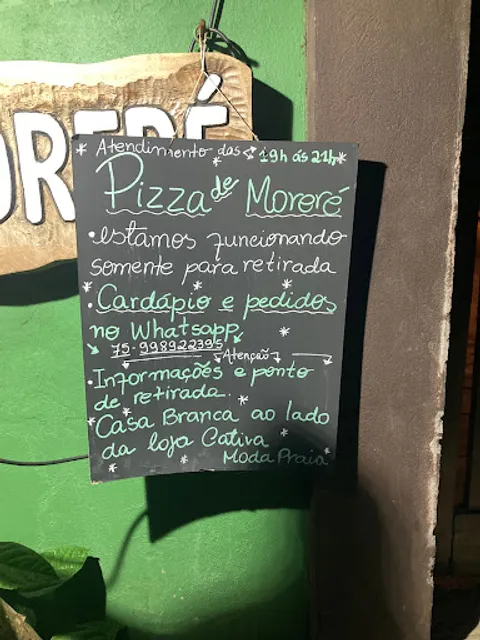 ORERÉ
* Atendimento das 19h ás 21h *
Pizza de Moreré
• estamos funcionando
somente para retirada
• Cardápio e pedidos
no Whatsapp
75-998922395
Atenção
• Informações e ponto
de retirada.
Casa Branca ao lado
da loja Cativa
Moda Praia